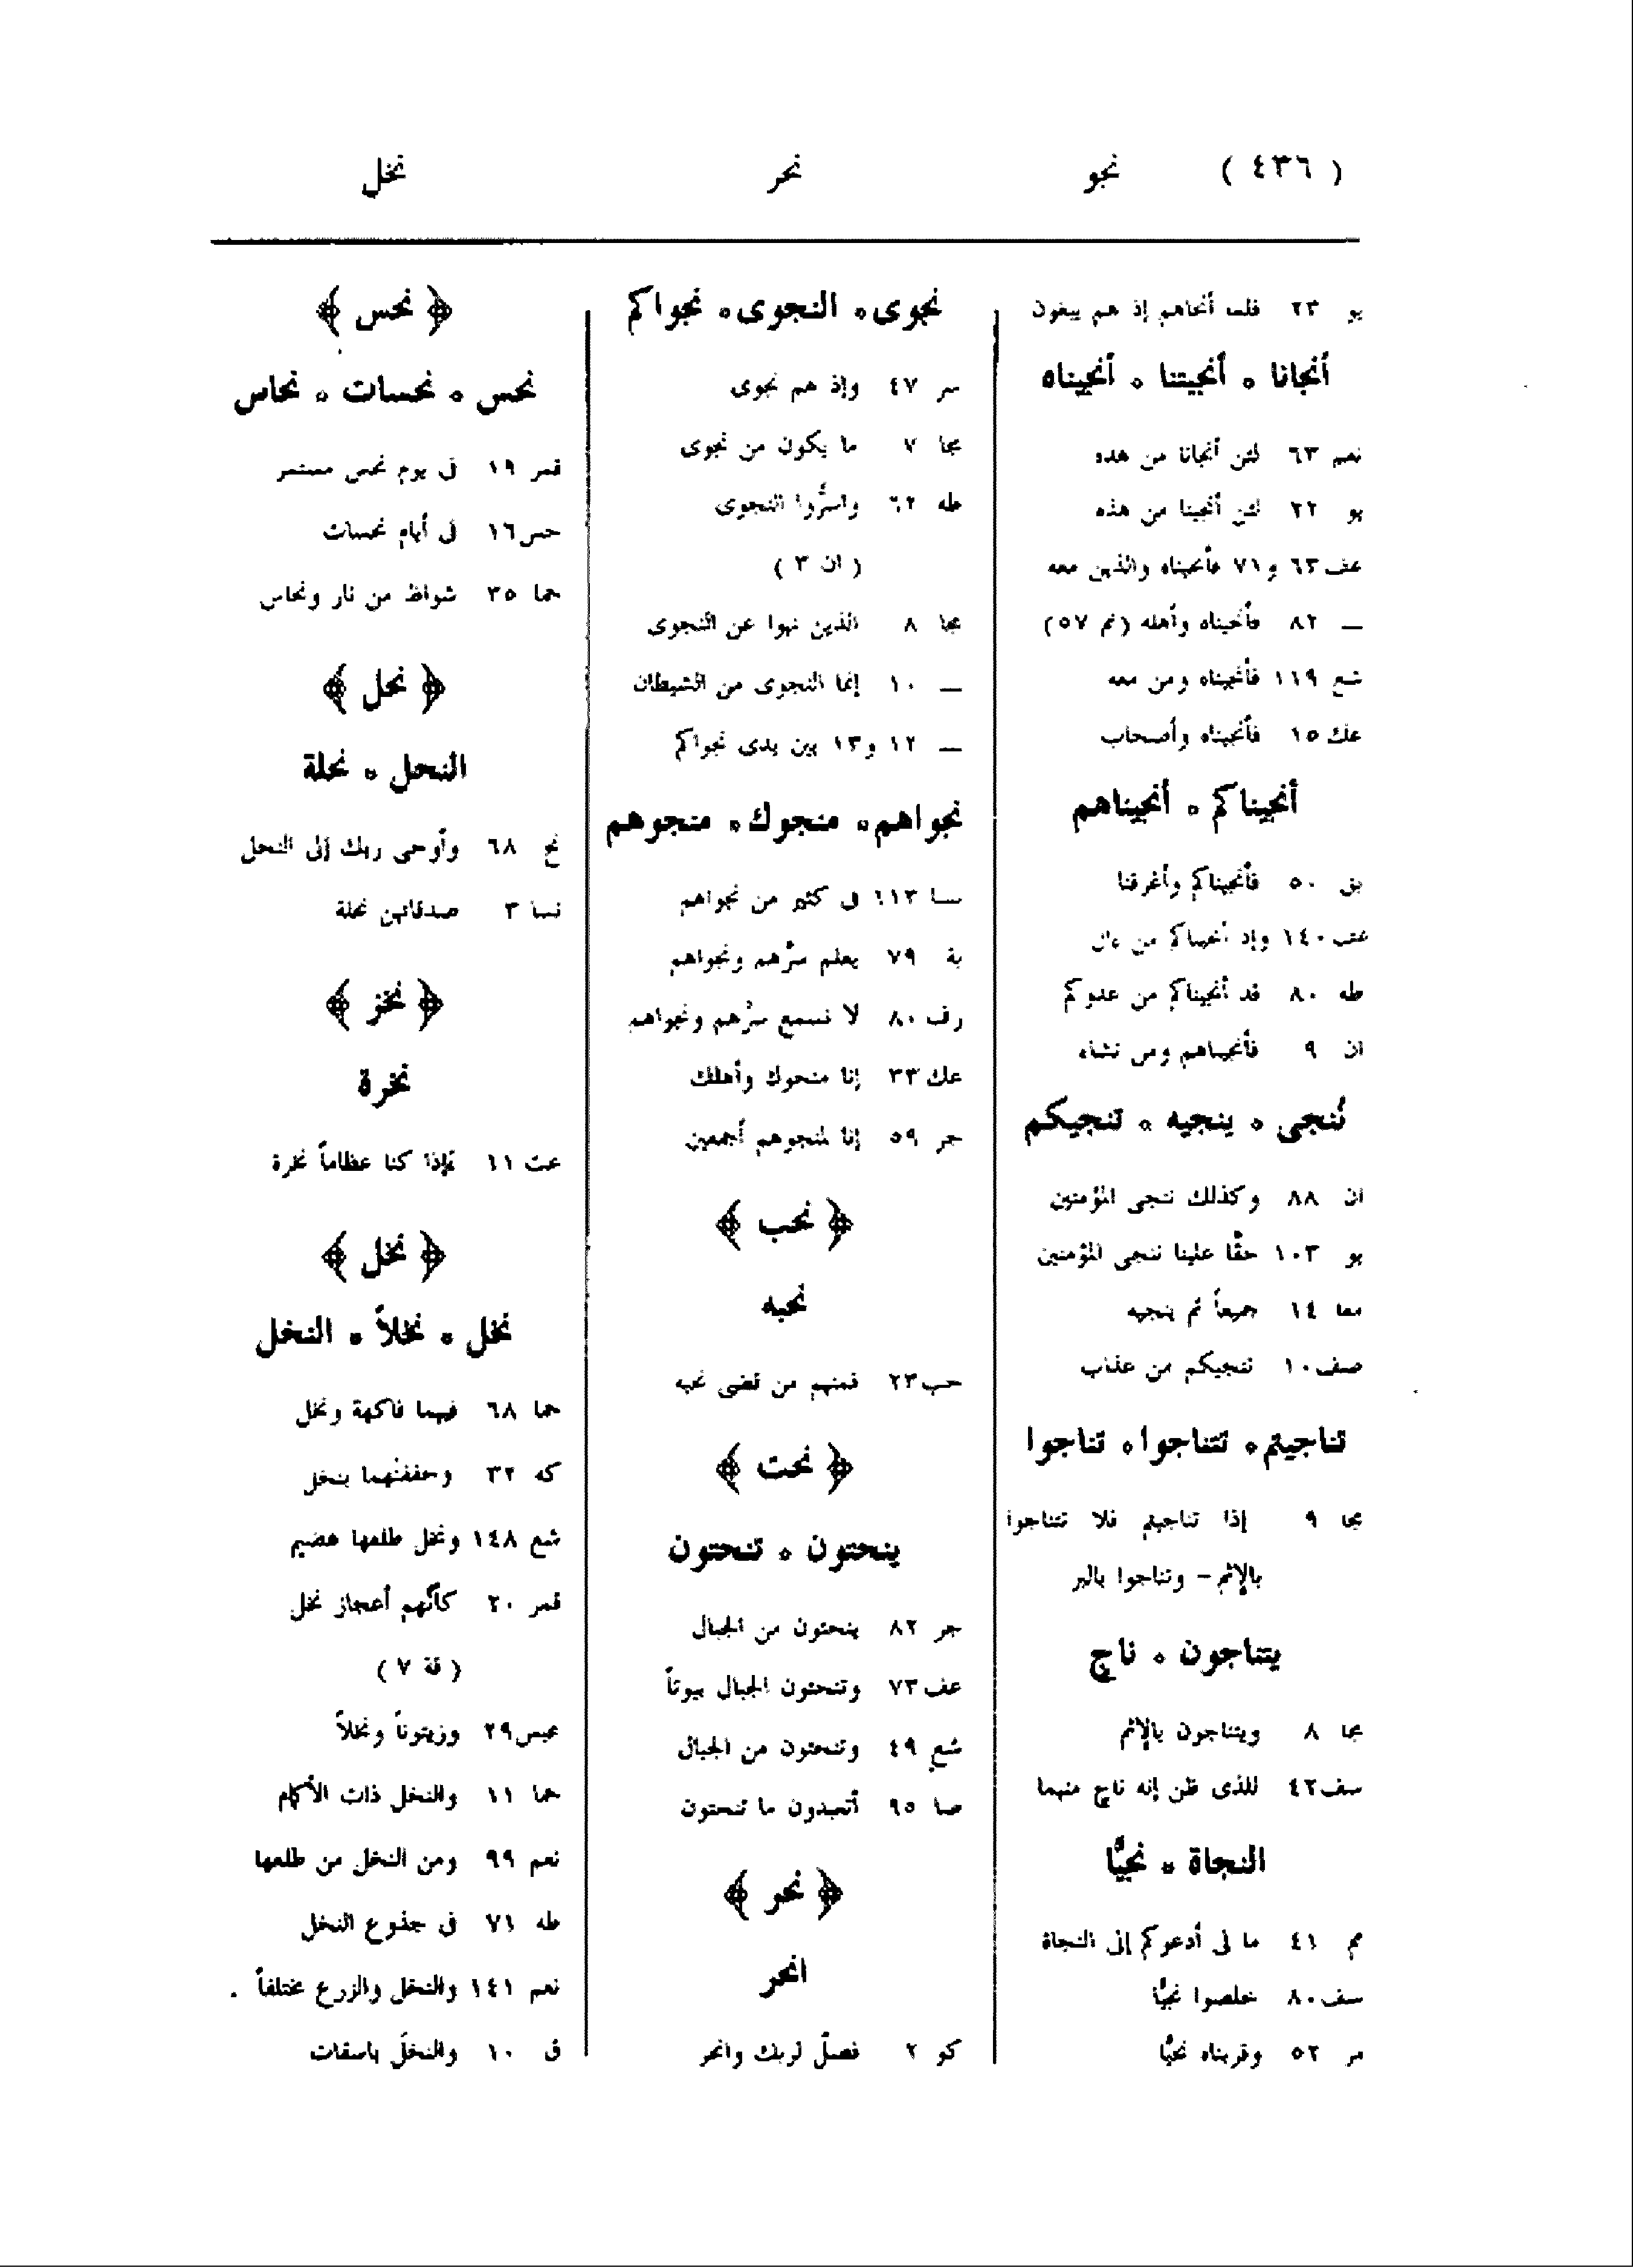 ( ٤٣٦ ) نجو نحر نخل
يو ٢٣ فلما أنجاهم إذ هم يبغون
أنجانا ، أنجيتنا ، أنجيناه
نعم ٦٣ لئن أنجانا من هذه
يو ٢٢ لئن أنجيتنا من هذه
عف ٦٣ و٧١ فأنجيناه والذين معه
ــ ٨٢ فأنجيناه وأهله (نم ٥٧)
شع ١١٩ فأنجيناه ومن معه
عك ١٥ فأنجيناه وأصحاب
أنجيناكم ، أنجيناهم
بق ٥٠ فأنجيناكم وأغرقنا
عف ١٤٠ وإذ أنجيناكم من آل
طه ٨٠ قد أنجيناكم من عدوكم
ان ٩ فأنجيناهم ومن نشاء
نُنجى ، ينجيه ، تنجيكم
ان ٨٨ وكذلك ننجى المؤمنين
يو ١٠٣ حقًّا علينا ننجى المؤمنين
معا ١٤ جميعاً ثم ينجيه
صف ١٠ تنجيكم من عذاب
تناجيتم ، تتناجوا ، تناجوا
مجا ٩ إذا تناجيتم فلا تتناجوا
بالإثم – وتناجوا بالبر
يتناجون ، ناج
مجا ٨ ويتناجون بالإثم
سف ٤٢ للذى ظن إنه ناج منهما
النجاة ، نجيًّا
مم ٤١ ما لى أدعوكم إلى النجاة
سف ٨٠ خلصوا نجيًّا
مر ٥٢ وقربناه نجيًّا
نجوى ، النجوى ، نجواكم
سر ٤٧ وإذ هم نجوى
مجا ٧ ما يكون من نجوى
طه ٦٢ وأسرُّوا النجوى
( ان ٣ )
مجا ٨ الذين نهوا عن النجوى
ــ ١٠ إنما النجوى من الشيطان
ــ ١٢ و١٣ بين يدى نجواكم
نجواهم ، منجوك ، منجوهم
نسا ١١٣ فى كثير من نجواهم
بة ٧٩ يعلم سرَّهم ونجواهم
رف ٨٠ لا نسمع سرَّهم ونجواهم
عك ٣٣ إنا منجوك وأهلك
جر ٥٩ إنا لمنجوهم أجمعين
﴿ نحب ﴾
نحبه
حب ٢٣ فمنهم من قضى نحبه
﴿ نحت ﴾
ينحتون ، تنحتون
جر ٨٢ ينحتون من الجبال
عف ٧٣ وتنحتون الجبال بيوتاً
شع ٤٩ وتنحتون من الجبال
صا ٩٥ أتعبدون ما تنحتون
﴿ نحر ﴾
انحر
كو ٢ فصلِّ لربك وانحر
﴿ نحس ﴾
نحس ، نحسات ، نحاس
قمر ١٩ فى يوم نحس مستمر
حس ١٦ فى أيام نحسات
حما ٣٥ شواظ من نار ونحاس
﴿ نحل ﴾
النحل ، نحلة
نح ٦٨ وأوحى ربك إلى النحل
نسا ٣ صدقاتهن نحلة
﴿ نخر ﴾
نخرة
عت ١١ ءإذا كنا عظاماً نخرة
﴿ نخل ﴾
نخل ، نخلاً ، النخل
حما ٦٨ فيهما فاكهة ونخل
كه ٣٢ وحففنهما بنخل
شع ١٤٨ ونخل طلعها هضيم
قمر ٢٠ كأنَّهم أعجاز نخل
( قة ٧ )
عبس ٢٩ وزيتوناً ونخلاً
حما ١١ والنخل ذات الأكمام
نعم ٩٩ ومن النخل من طلعها
طه ٧١ فى جذوع النخل
نعم ١٤١ والنخل والزرع مختلفاً
ق ١٠ والنخل باسقات